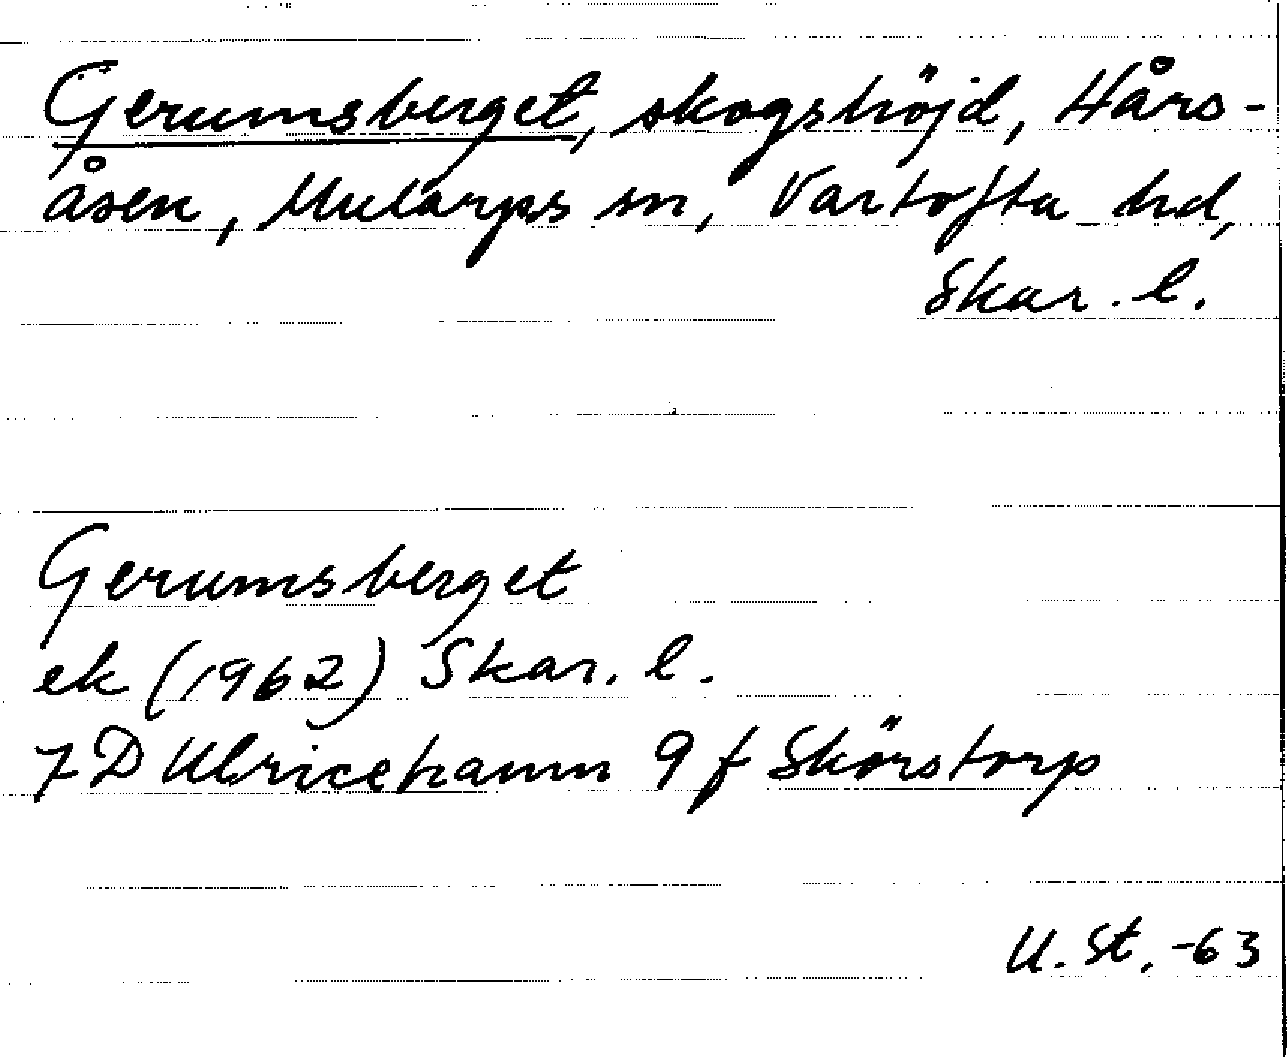 Gerumsberget, skogshöjd, Hårs-
åsen, Mularps sn, Vartofta hd,
Skar. l.
Gerumsberget
ek (1962) Skar. l.
7 D Ulricehamn 9 f Skörstorp
U. St. -63